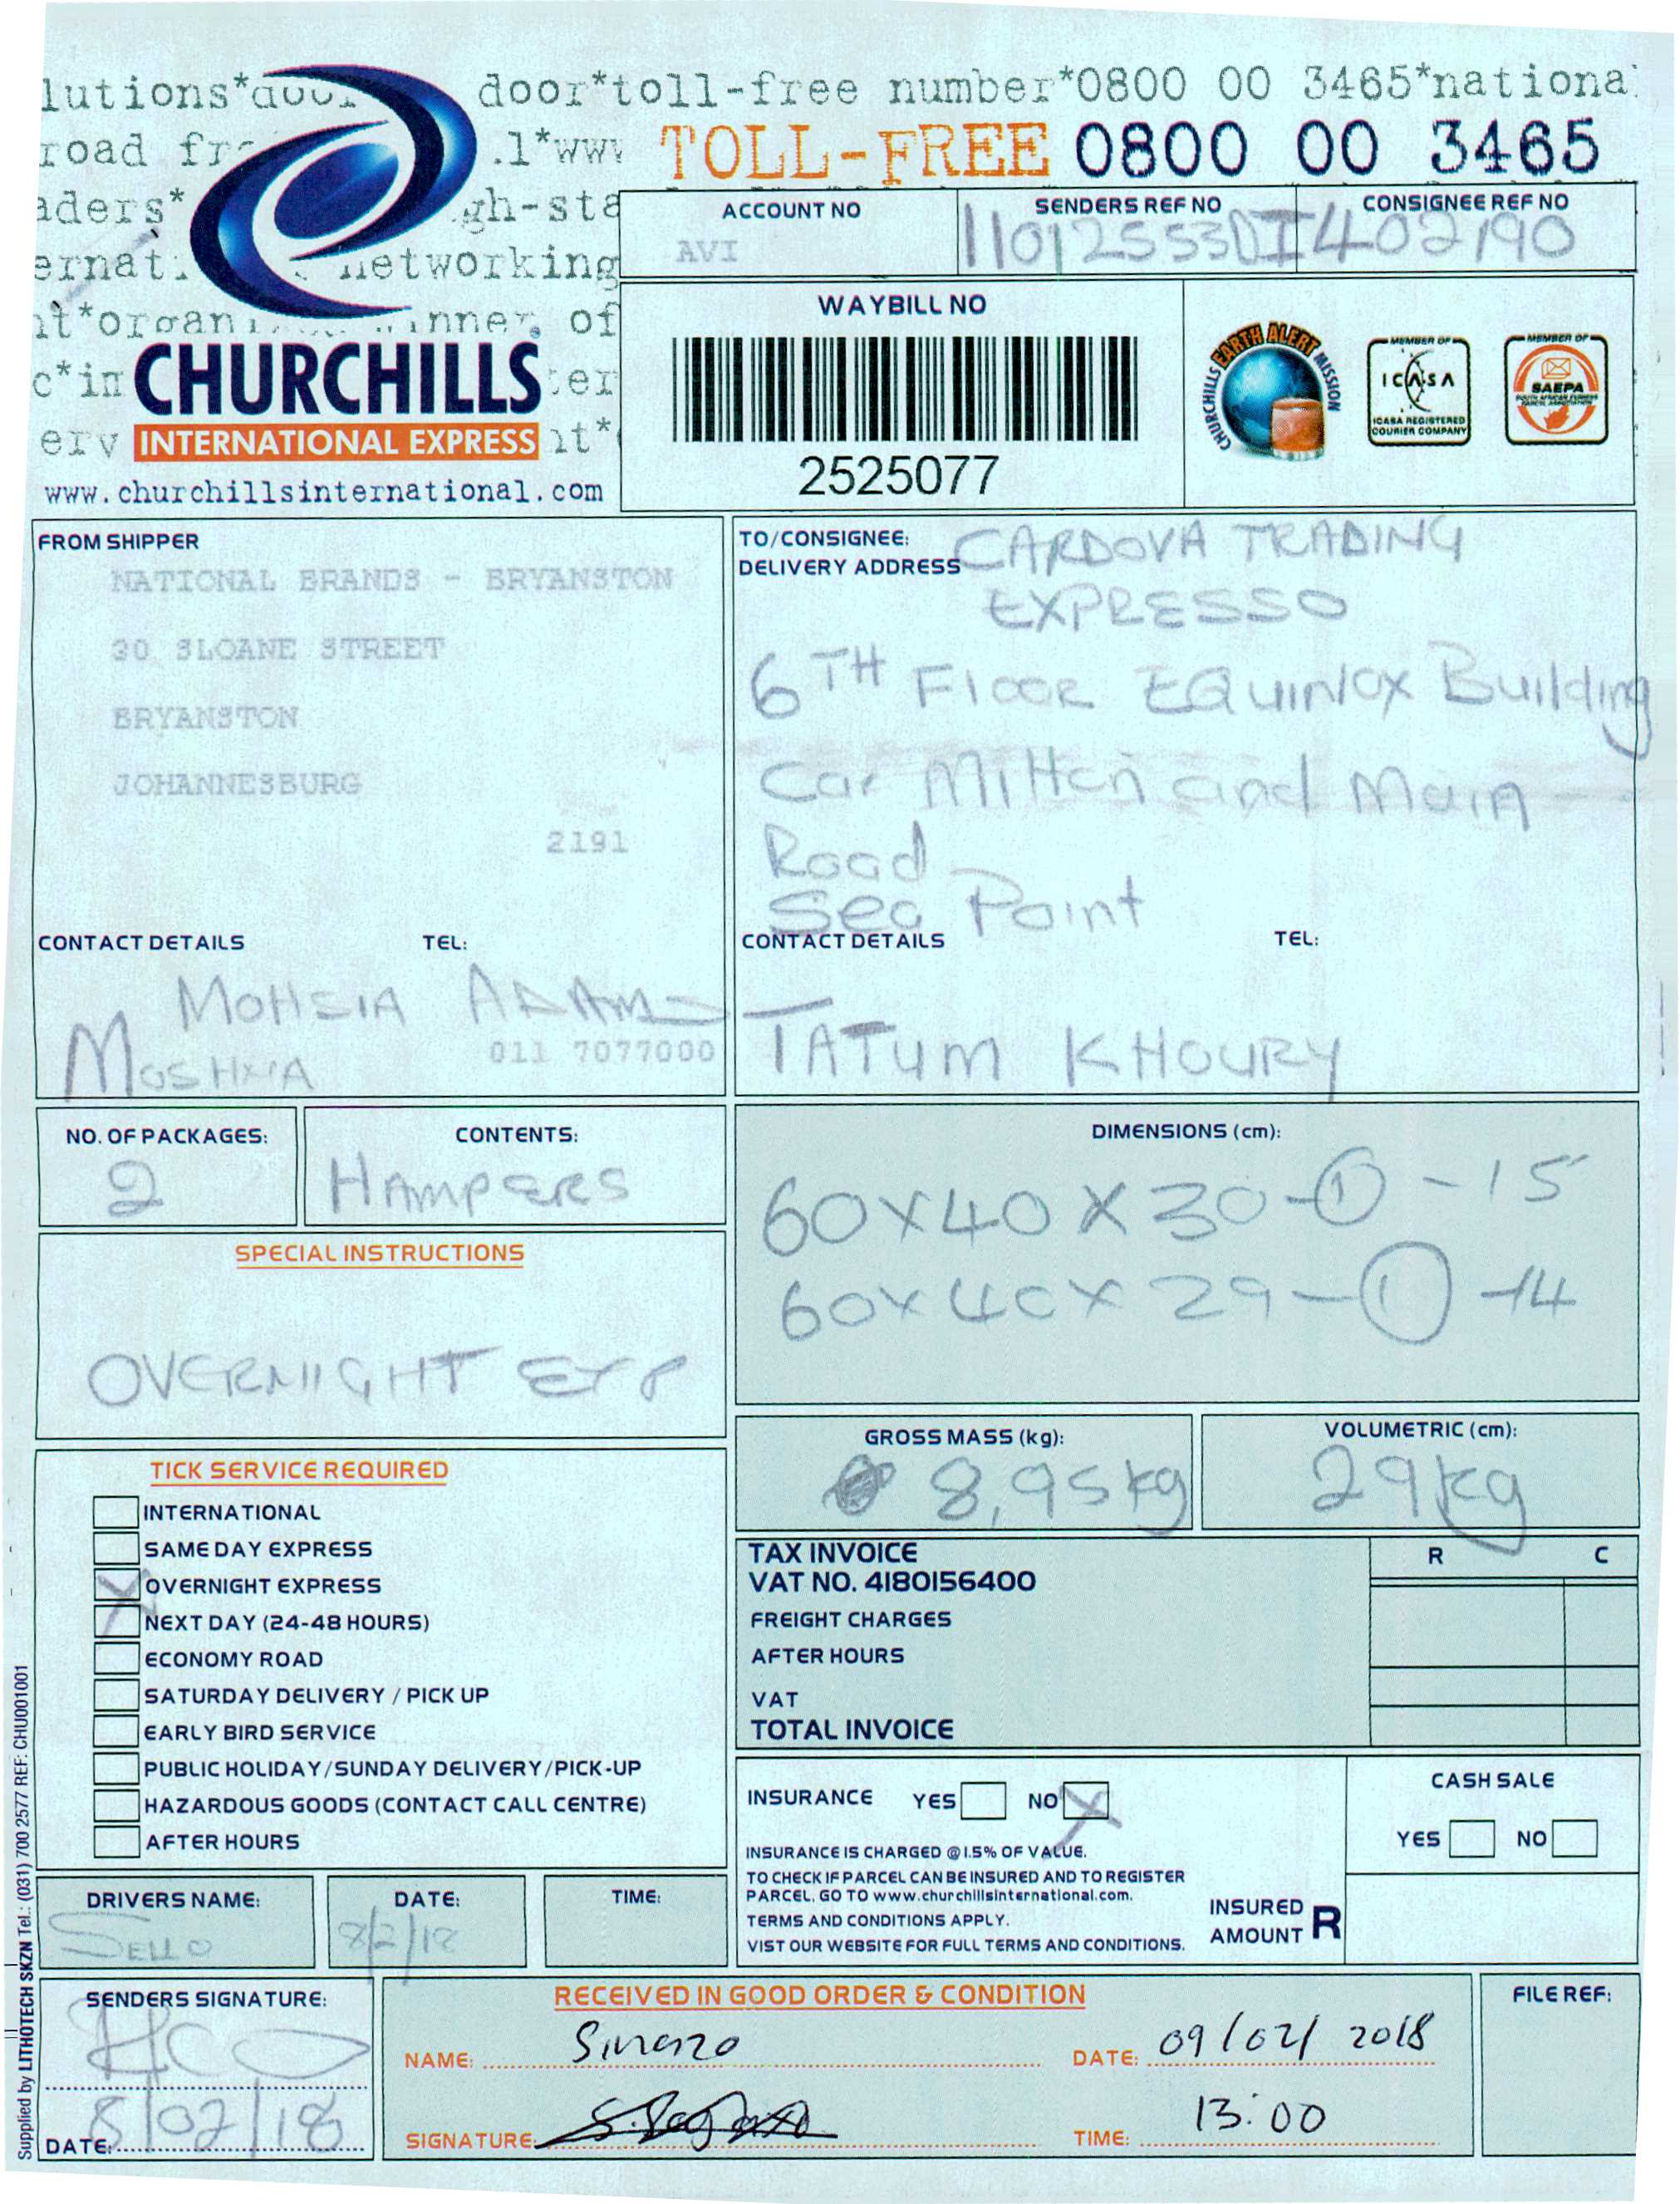 door*toll-free number*0800 00 3465*national
TOLL-FREE 0800 00 3465
ACCOUNT NO
AVI
SENDERS REF NO
CONSIGNEE REF NO
11012553DI402190
CHURCHILLS
INTERNATIONAL EXPRESS
www.churchillsinternational.com
WAYBILL NO
2525077
CHURCHILLS EARTH ALERT MISSION
MEMBER OF
ICASA
ICASA REGISTERED
COURIER COMPANY
MEMBER OF
SAEPA
FROM SHIPPER
NATIONAL BRANDS - BRYANSTON
30 SLOANE STREET
BRYANSTON
JOHANNESBURG
2191
CONTACT DETAILS TEL:
MOHSIA ADAMS
011 7077000
TO/CONSIGNEE:
DELIVERY ADDRESS
CARDOVA TRADING
EXPRESSO
6TH Floor EQuinox Building
Cor Milton and Main
Road
Sea Point
CONTACT DETAILS TEL:
TATUM KHOURY
NO. OF PACKAGES:
2
CONTENTS:
HAMPERS
DIMENSIONS (cm):
60X40X30-① -15
60X40X29-① -14
SPECIAL INSTRUCTIONS
OVERNIGHT EXP
GROSS MASS (kg):
8,95kg
VOLUMETRIC (cm):
29kg
TICK SERVICE REQUIRED
INTERNATIONAL
SAME DAY EXPRESS
OVERNIGHT EXPRESS
NEXT DAY (24-48 HOURS)
ECONOMY ROAD
SATURDAY DELIVERY / PICK UP
EARLY BIRD SERVICE
PUBLIC HOLIDAY/SUNDAY DELIVERY/PICK-UP
HAZARDOUS GOODS (CONTACT CALL CENTRE)
AFTER HOURS
TAX INVOICE
VAT NO. 4180156400
R C
FREIGHT CHARGES
AFTER HOURS
VAT
TOTAL INVOICE
INSURANCE YES NO X
INSURANCE IS CHARGED @ 1.5% OF VALUE.
TO CHECK IF PARCEL CAN BE INSURED AND TO REGISTER
PARCEL, GO TO www.churchillsinternational.com.
TERMS AND CONDITIONS APPLY.
VIST OUR WEBSITE FOR FULL TERMS AND CONDITIONS.
INSURED
AMOUNT R
CASH SALE
YES NO
DRIVERS NAME:
SELLO
DATE:
8/2/18
TIME:
SENDERS SIGNATURE:
DATE: 8/02/18
RECEIVED IN GOOD ORDER & CONDITION
NAME: Sinazo
DATE: 09/02/2018
SIGNATURE:
TIME: 13:00
FILE REF:
Supplied by LITHOTECH SKZN Tel.: (031) 700 2577 REF: CHU001001